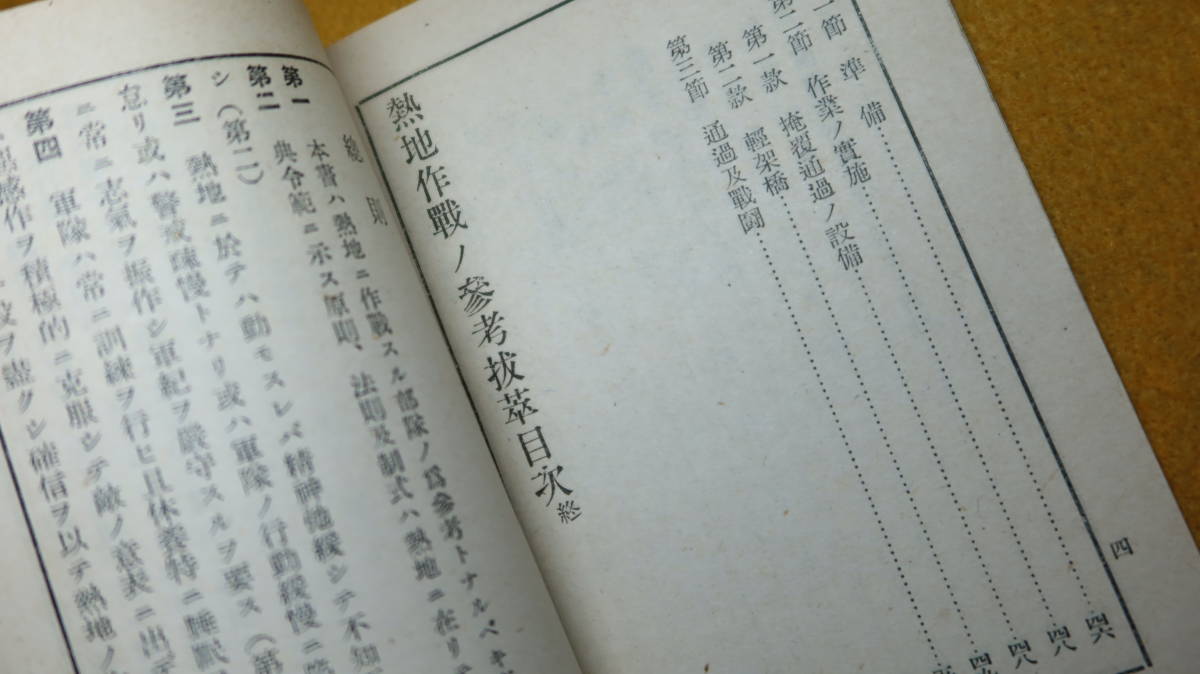 節 準備 四六
第二節 作業ノ實施 四八
第一款 掩覆通過ノ設備 四八
第二款 輕架橋
第三節 通過及戰鬪
熱地作戰ノ參考拔萃目次 終
四
總則
第一 本書ハ熱地ニ作戰スル部隊ノ爲參考トナルベキ
典令範ニ示ス原則、法則及制式ハ熱地ニ在リテ
シ(第二)
第二 熱地ニ於テハ動モスレバ精神弛緩シテ不知
怠リ或ハ警戒疎慢トナリ或ハ軍隊ノ行動緩慢ニ
ニ常ニ志氣ヲ振作シ軍紀ヲ嚴守スルヲ要ス(第
第三
第四 軍隊ハ常ニ訓練ヲ行ヒ且休養特ニ睡眠
ヲ積極的ニ克服シテ敵ノ意表ニ出デ
ヲ盡クシ確信ヲ以テ熱地ノ